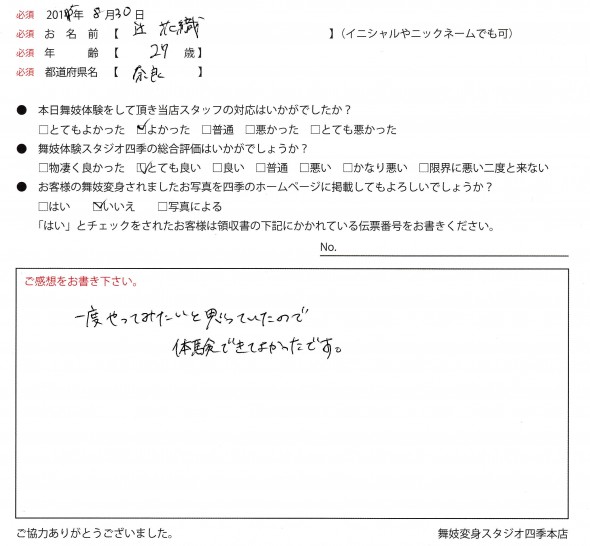 必須 2015年 8月30日
必須 お 名 前 【 辻 花織 】(イニシャルやニックネームでも可)
必須 年 齢 【 27 歳】
必須 都道府県名 【 奈良 】
● 本日舞妓体験をして頂き当店スタッフの対応はいかがでしたか？
□とてもよかった ☑よかった □普通 □悪かった □とても悪かった
● 舞妓体験スタジオ四季の総合評価はいかがでしょうか？
□物凄く良かった ☑とても良い □良い □普通 □悪い □かなり悪い □限界に悪い二度と来ない
● お客様の舞妓変身されましたお写真を四季のホームページに掲載してもよろしいでしょうか？
□はい ☑いいえ □写真による
「はい」とチェックをされたお客様は領収書の下記にかかれている伝票番号をお書きください。
No.
ご感想をお書き下さい。
一度やってみたいと思っていたので
体験できてよかったです。
ご協力ありがとうございました。 舞妓変身スタジオ四季本店